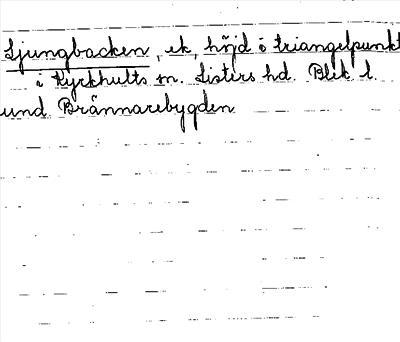 Ljungbacken, ek, höjd o triangelpunkt
i Kyrkhults sn. Listers hd. Blek. l.
und Brännarebygden